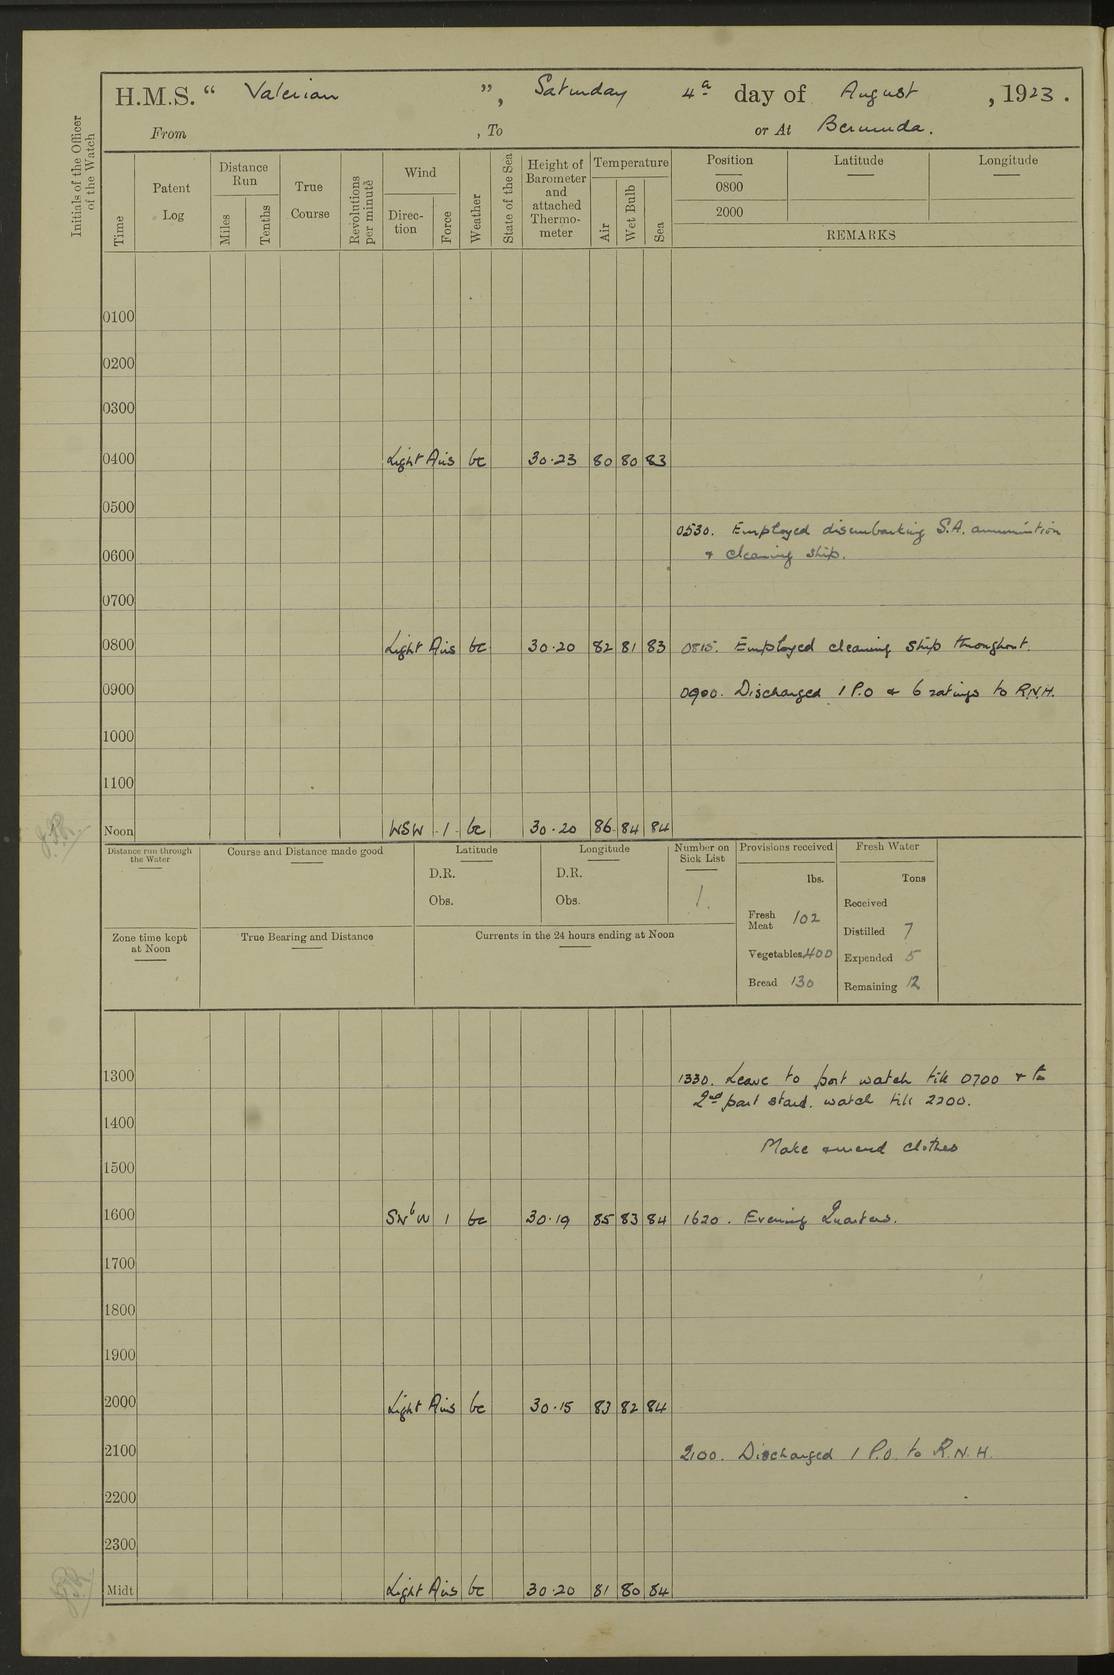 H.M.S. “ Valerian ”, Saturday 4th day of August , 1923 .
From , To or At Bermuda.
Initials of the Officer of the Watch
Time
Patent Log
Distance Run
Miles
Tenths
True Course
Revolutions per minute
Wind
Direc-tion
Force
Weather
State of the Sea
Height of Barometer and attached Thermo-meter
Temperature
Air
Wet Bulb
Sea
Position Latitude Longitude
0800
2000
REMARKS
0100
0200
0300
0400 Light Airs bc 30·23 80 80 83
0500
0530. Employed disembarking S.A. ammunition
0600 & cleaning ship.
0700
0800 Light Airs bc 30·20 82 81 83 0815. Employed cleaning ship throughout.
0900 0900. Discharged 1 P.O & 6 ratings to R.N.H.
1000
1100
Noon WSW 1 bc 30·20 86 84 84
Distance run through the Water
Course and Distance made good
Latitude
D.R.
Obs.
Longitude
D.R.
Obs.
Number on Sick List
1.
Provisions received
lbs.
Fresh Meat 102
Vegetables 400
Bread 130
Fresh Water
Tons
Received
Distilled 7
Expended 5
Remaining 12
Zone time kept at Noon
True Bearing and Distance
Currents in the 24 hours ending at Noon
1300 1330. Leave to port watch till 0700 & to
2nd part starbd. watch till 2200.
1400
Make & mend clothes
1500
1600 SWbW 1 bc 30·19 85 83 84 1620. Evening Quarters.
1700
1800
1900
2000 Light Airs bc 30·15 83 82 84
2100 2100. Discharged 1 P.O. to R.N.H.
2200
2300
Midt Light Airs bc 30·20 81 80 84